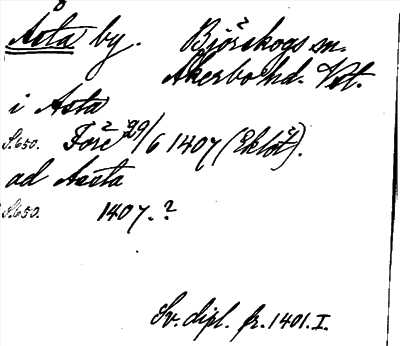 Åsta by. Björskogs sn.
Åkerbo hd. Vst.
i Asta
S. 650. 29/6 1407 (Eklöf).
ad Aasta
S. 650. 1407.?
Sv. dipl. fr. 1401. I.